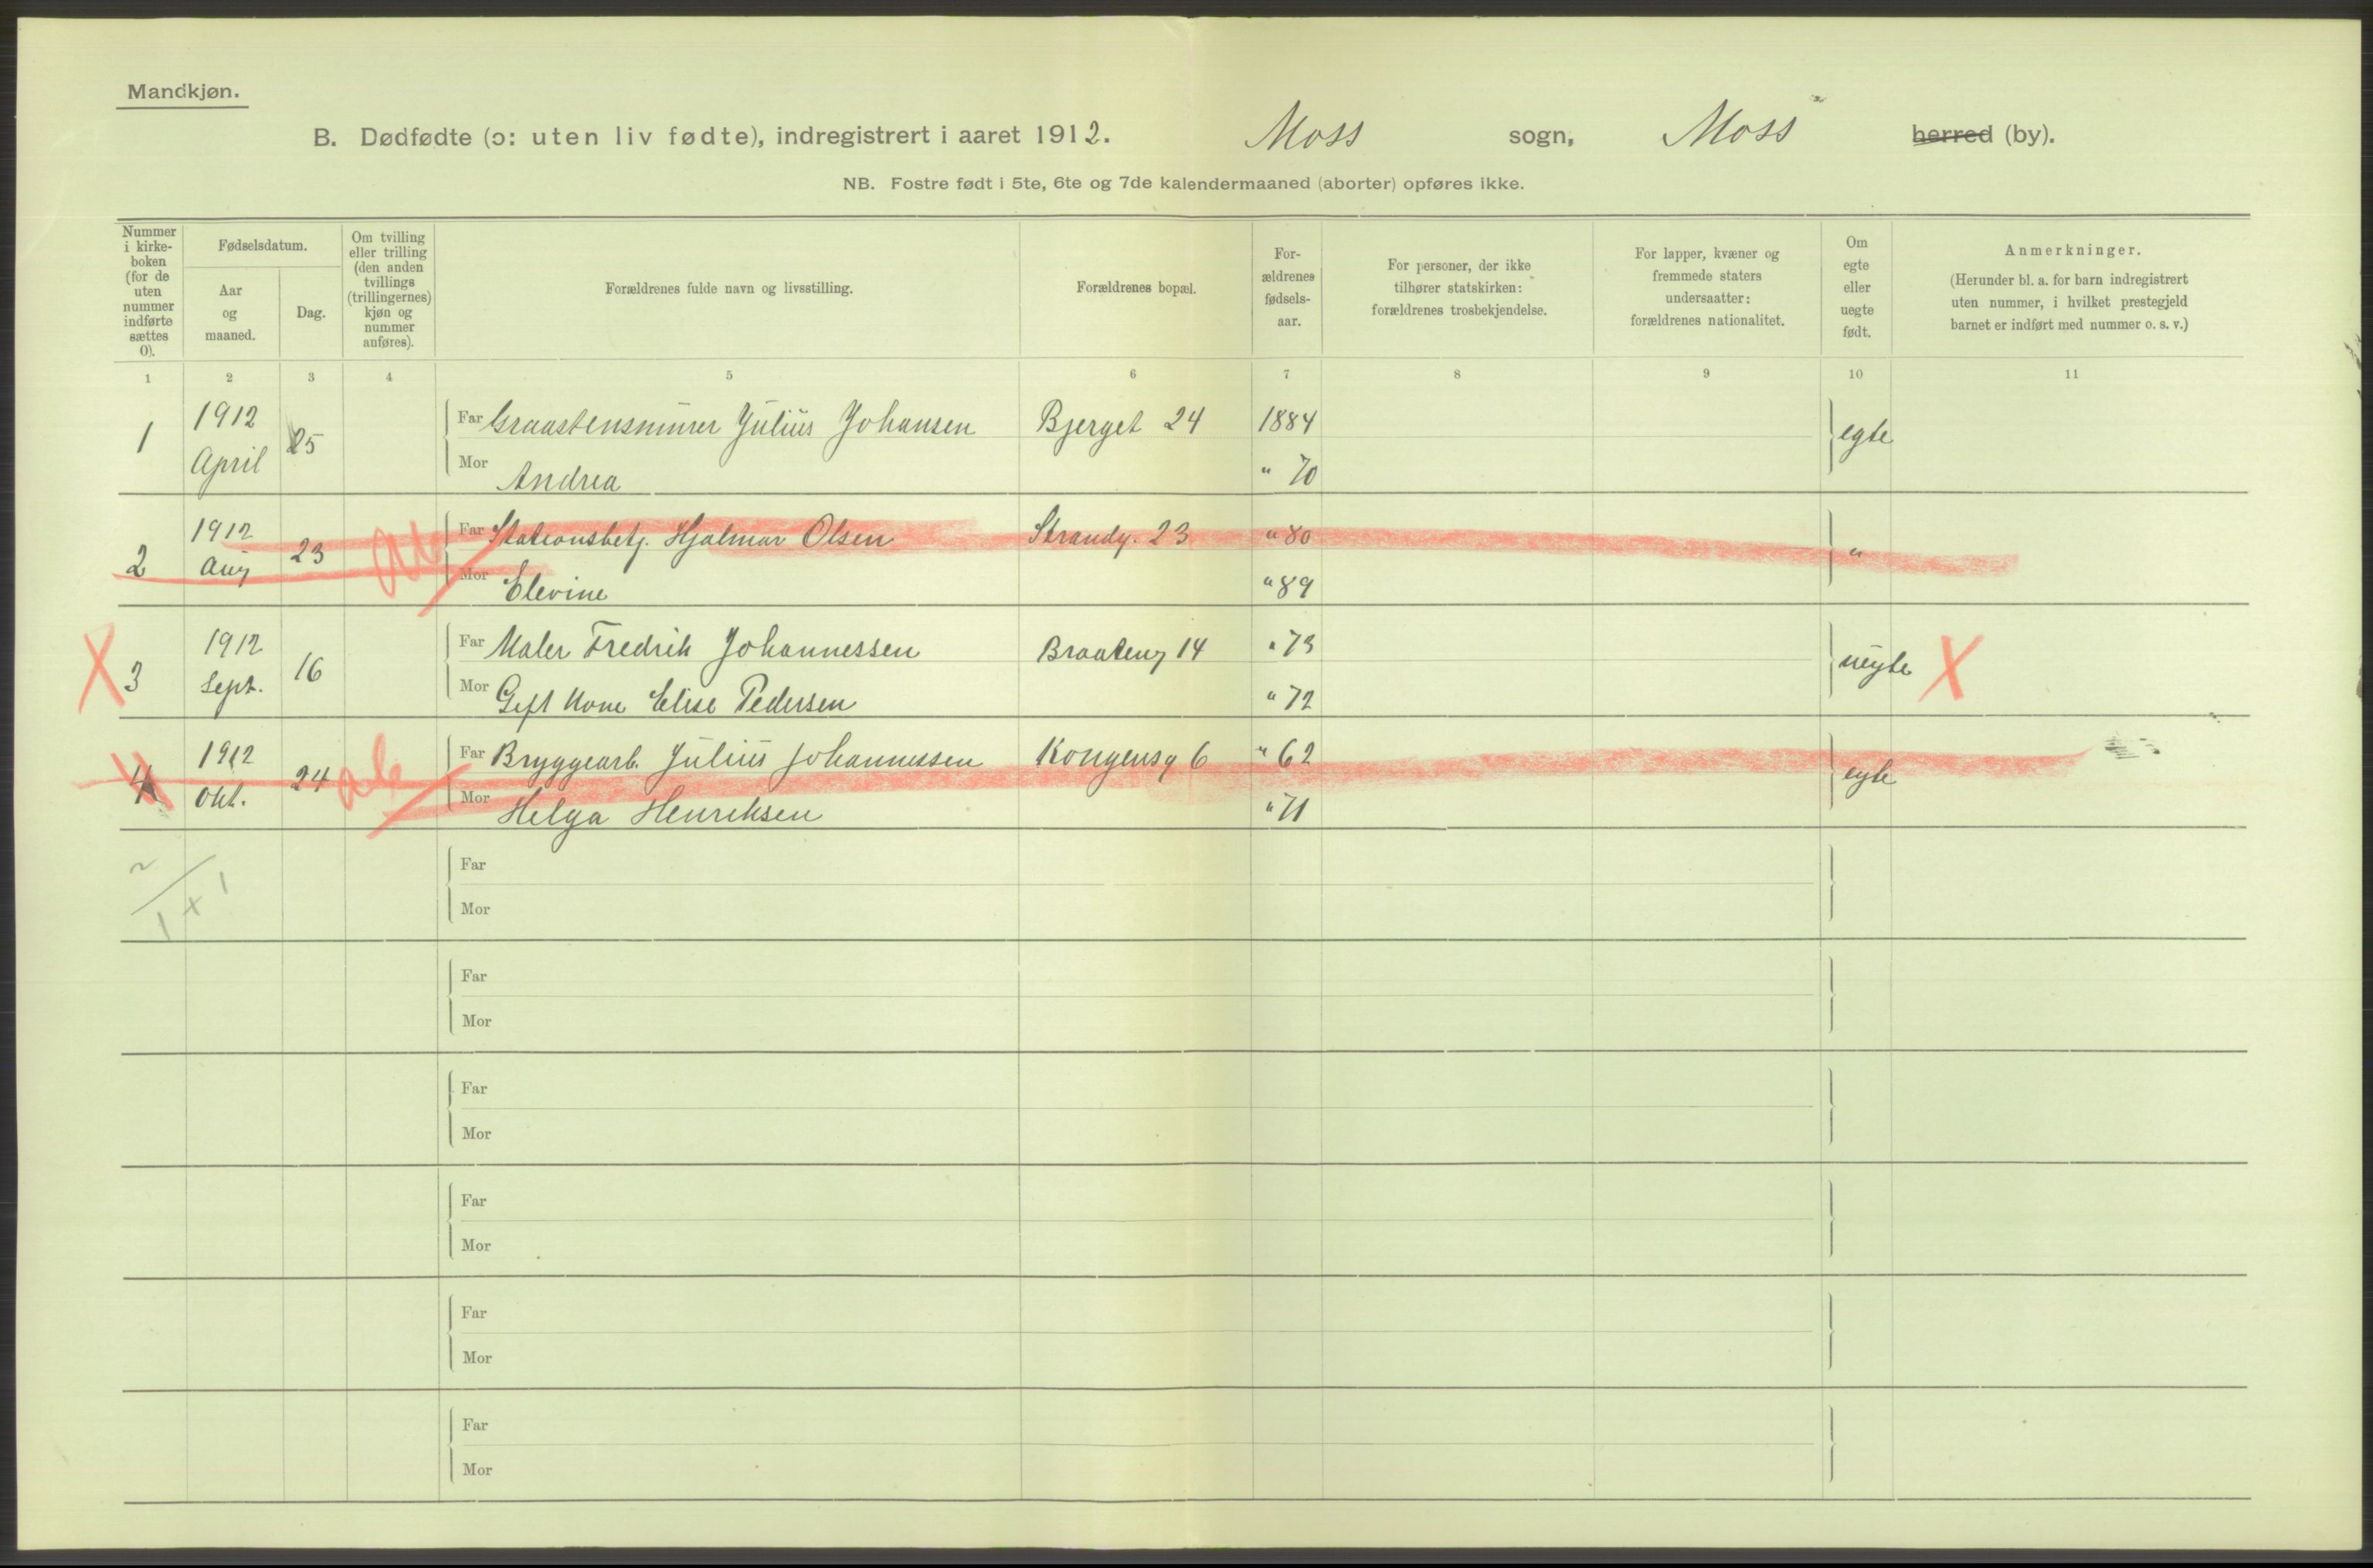 Mandkjøn.
B. Dødfødte (ɔ: uten liv fødte), indregistrert i aaret 1912. Moss sogn, Moss herred (by).
NB. Fostre født i 5te, 6te og 7de kalendermaaned (aborter) opføres ikke.
Nummer
i kirke-
boken
(for de
uten
nummer
indførte
sættes
0).
Fødselsdatum.
Aar
og
maaned.
Dag.
Om tvilling
eller trilling
(den anden
tvillings
(trillingernes)
kjøn og
nummer
anføres).
Forældrenes fulde navn og livsstilling.
Forældrenes bopæl.
For-
ældrenes
fødsels-
aar.
For personer, der ikke
tilhører statskirken:
forældrenes trosbekjendelse.
For lapper, kvæner og
fremmede staters
undersaatter:
forældrenes nationalitet.
Om
egte
eller
uegte
født.
Anmerkninger.
(Herunder bl. a. for barn indregistrert
uten nummer, i hvilket prestegjeld
barnet er indført med nummer o. s. v.)
1 2 3 4 5 6 7 8 9 10 11
1 1912 April 25 Far Graastensmurer Julius Johansen Bjerget 24 1884 egte
Mor Andrea " 70
2 1912 Aug 23 ab Far Stationsbetj. Hjalmar Olsen Strandg. 23 " 80 "
Mor Elevine " 89
X 3 1912 Sept. 16 Far Maler Fredrik Johannessen Braateng 14 " 73 uegte X
Mor Gift Kone Elise Pedersen " 72
4 1912 Okt. 24 ab Far Bryggearb. Julius Johannessen Kongensg 6 " 62 egte
Mor Helga Henriksen " 71
2
1 + 1
Far
Mor
Far
Mor
Far
Mor
Far
Mor
Far
Mor
Far
Mor